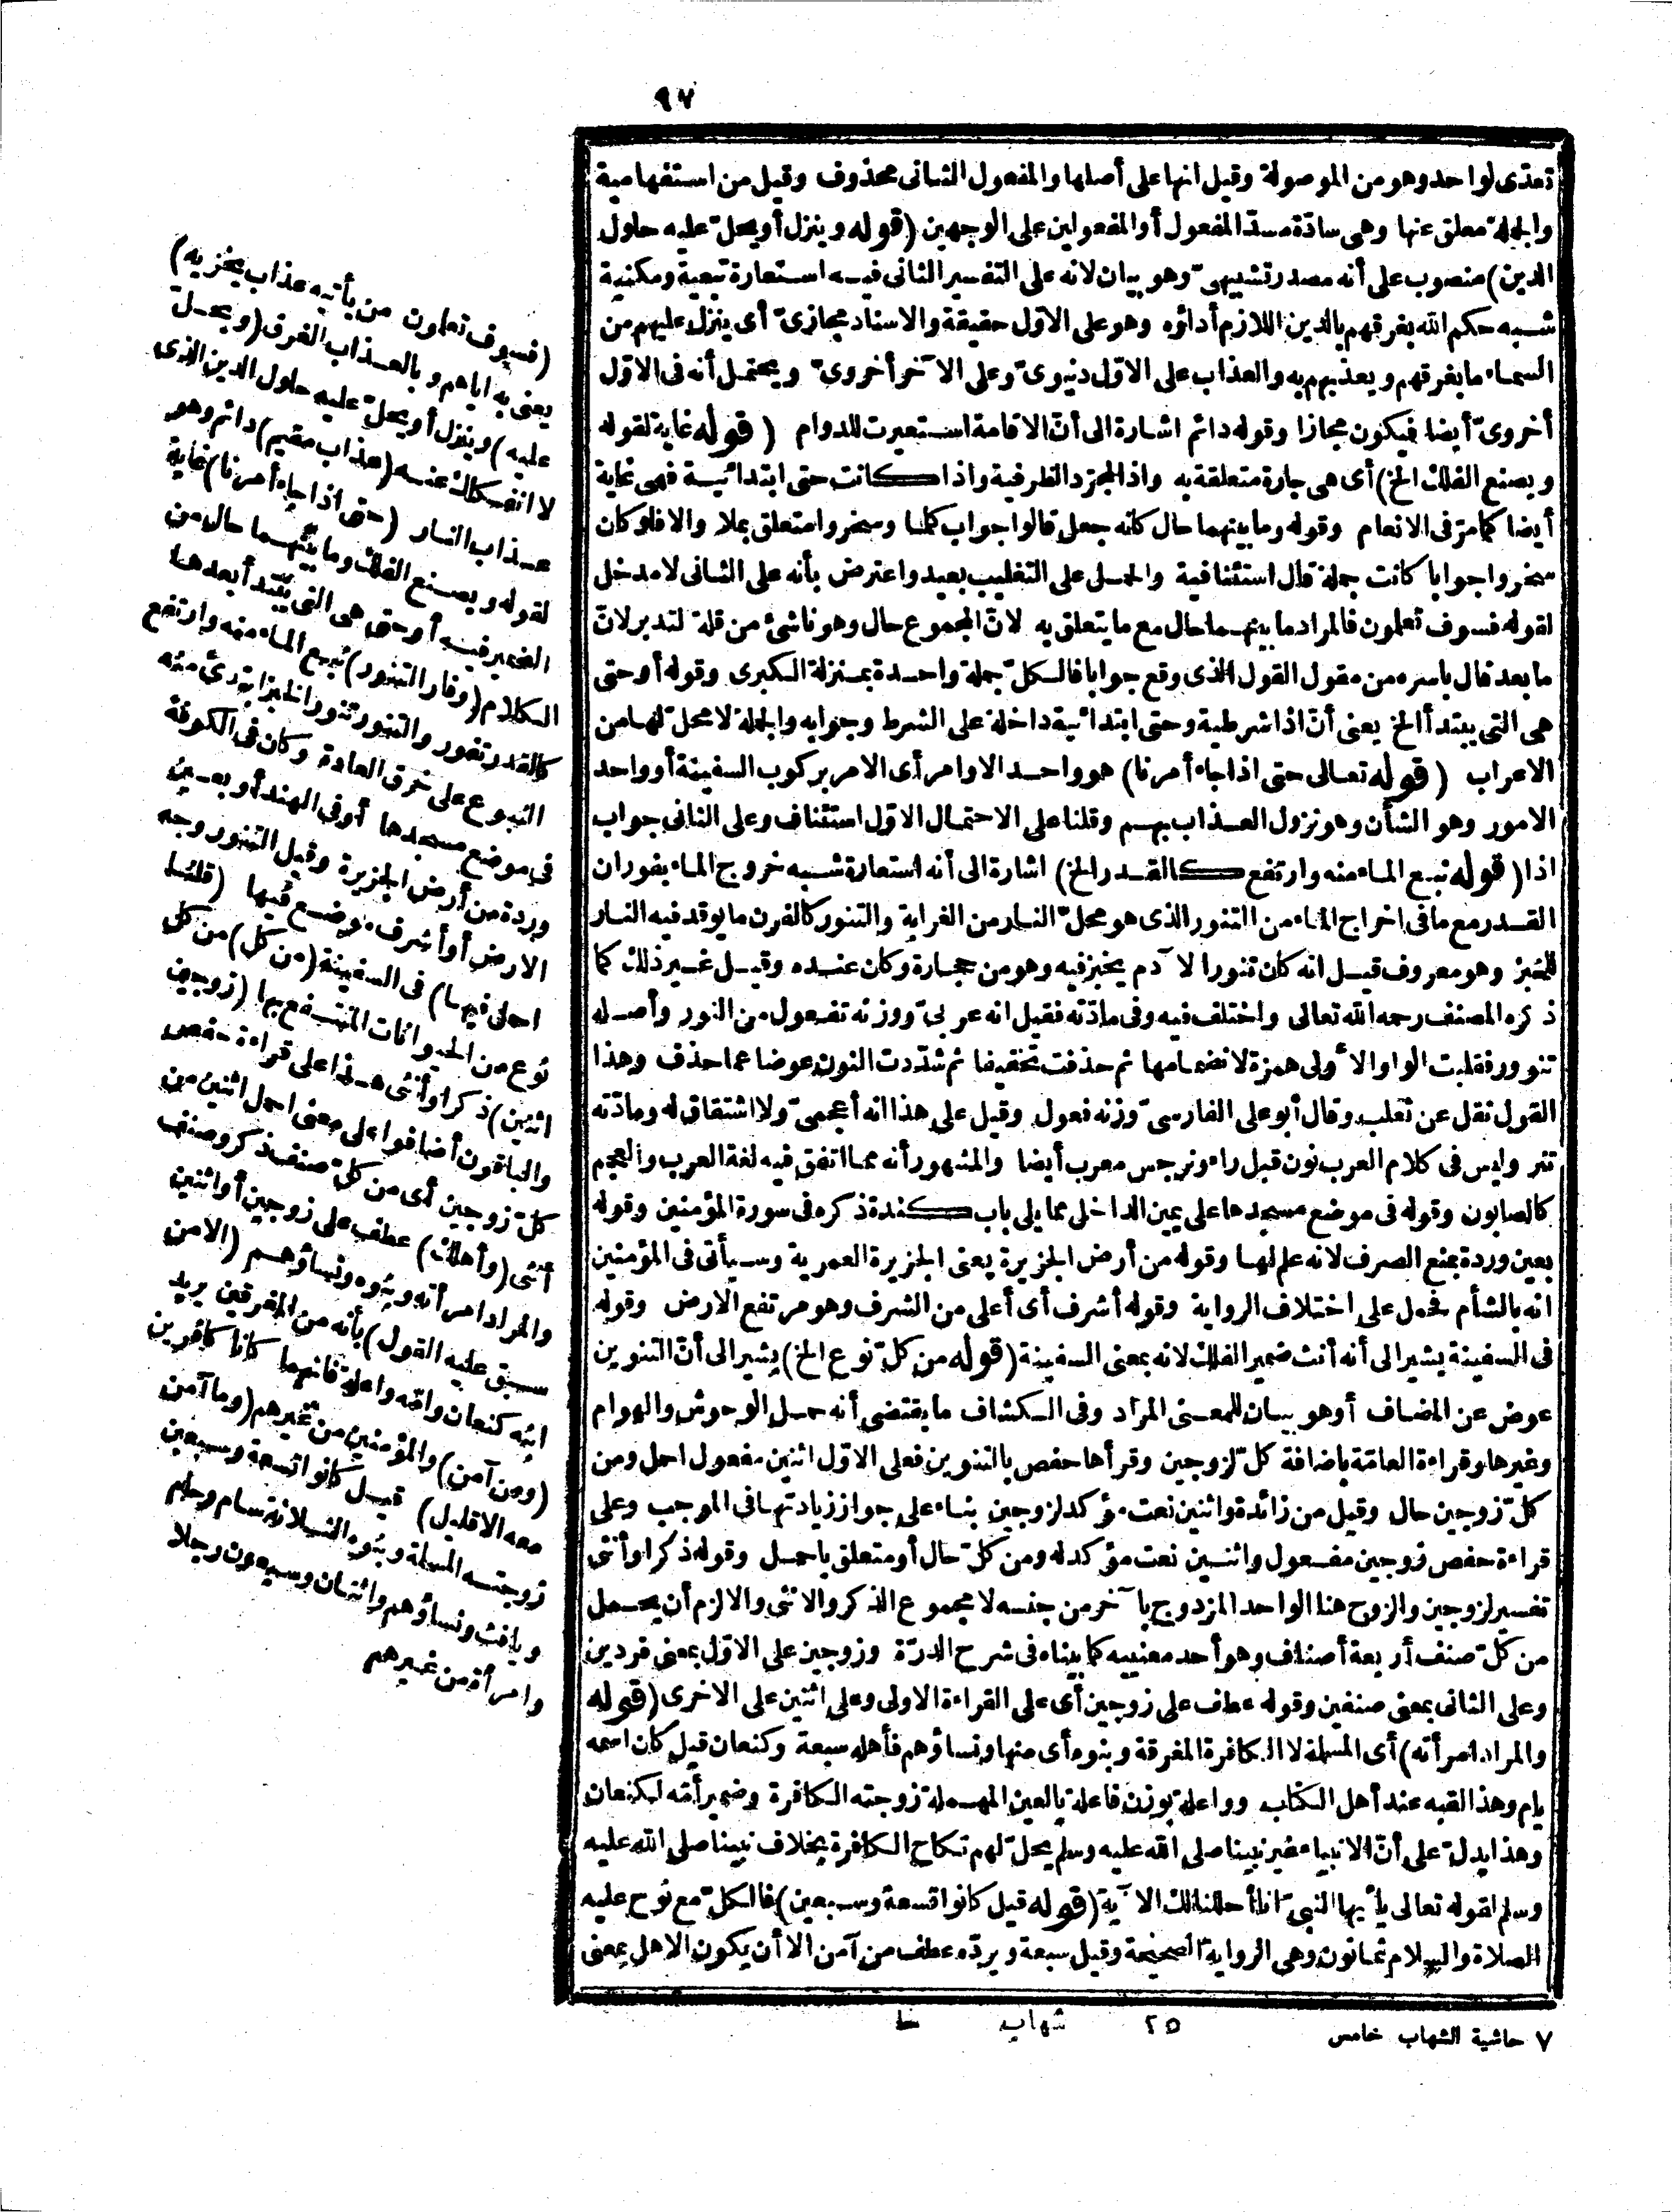 ٩٧
تعدّى لواحد وهو من الموصولة وقيل انها على أصلها والمفعول الثانى محذوف وقيل من استفهامية
والجملة معلق عنها وهى سادّة مسدّ المفعول أو المفعولين على الوجهين (قوله وينزل أو يحلّ عليه حلول
الدين) منصوب على أنه مصدر تشبيهىّ وهو بيان لانه على التفسير الثانى فيه استعارة تبعية ومكنية
شبه حكم الله بغرقهم بالدين اللازم أداؤه وهو على الاوّل حقيقة والاسناد مجازىّ أى ينزل عليهم من
السماء ما يغرقهم ويعذبهم به والعذاب على الاوّل دنيوىّ وعلى الآخر أخروىّ ويحتمل أنه فى الاوّل
أخروىّ أيضا فيكون مجازا وقوله دائم اشارة الى أنّ الاقامة استعيرت للدوام (قوله غاية لقوله
ويصنع الفلك الخ) أى هى جارة متعلقة به واذا لمجرّد الظرفية واذا كانت حتى ابتدائية فهى غاية
أيضا كما مرّ فى الانعام وقوله وما بينهما حال كأنه جعل قالوا جواب كلما وسخروا متعلق بملا والا فلو كان
سخروا جوابا كانت جملة قال استئنافية والحمل على التغليب بعيد واعترض بأنه على الثانى لا مدخل
لقوله فسوف تعلمون فالمراد ما بينهما حال مع ما يتعلق به لانّ المجموع حال وهو ناشئ من قلة التدبر لانّ
ما بعد قال باسره من مقول القول الذى وقع جوابا فالكلّ جملة واحدة بمنزلة الكبرى وقوله أو حتى
هى التى يبتدأ الخ يعنى أنّ اذا شرطية وحتى ابتدائية داخلة على الشرط وجوابه والجملة لا محلّ لها من
الاعراب (قوله تعالى حتى اذا جاء أمرنا) هو واحد الاوامر أى الامر بركوب السفينة أو واحد
الامور وهو الشأن وهو نزول العذاب بهم وقلنا على الاحتمال الاوّل استئناف وعلى الثانى جواب
اذا (قوله نبع الماء منه وارتفع كالقدر الخ) اشارة الى أنه استعارة شبه خروج الماء بفوران
القدر مع ما فى اخراج الماء من التنور الذى هو محلّ النار من الغرابة والتنور كالفرن ما يوقد فيه النار
للخبز وهو معروف قيل انه كان تنورا لآدم يخبز فيه وهو من حجارة وكان عنده وقيل غير ذلك كما
ذكره المصنف رحمه الله تعالى واختلف فيه وفى مادّته فقيل انه عربىّ ووزنه تفعول من النور وأصله
تنوور فقلبت الواو الاولى همزة لانضمامها ثم حذفت تخفيفا ثم شدّدت النون عوضا عما حذف وهذا
القول نقل عن ثعلب وقال أبو على الفارسىّ وزنه فعول وقيل على هذا انه أعجمىّ ولا اشتقاق له ومادّته
تنر وليس فى كلام العرب نون قبل راء ونرجس معرب أيضا والمشهور أنه مما اتفق فيه لغة العرب والعجم
كالصابون وقوله فى موضع مسجدها على يمين الداخل مما يلى باب كندة ذكره فى سورة المؤمنين وقوله
بعين وردة بمنع الصرف لانه علم لها وقوله من أرض الجزيرة يعنى الجزيرة العمرية وسيأتى فى المؤمنين
انه بالشأم فحمل على اختلاف الرواية وقوله أشرف أى أعلى من الشرف وهو مرتفع الارض وقوله
فى السفينة يشير الى أنه أنث ضمير الفلك لانه بمعنى السفينة (قوله من كلّ نوع الخ) يشير الى أنّ التنوين
عوض عن المضاف أو هو بيان للمعنى المراد وفى الكشاف ما يقتضى أنه حمل الوحوش والهوام
وغيرها وقراءة العامّة باضافة كلّ لزوجين وقرأها حفص بالتنوين فعلى الاوّل اثنين مفعول احمل ومن
كلّ زوجين حال وقيل من زائدة واثنين نعت مؤكد لزوجين بناء على جواز زيادتها فى الموجب وعلى
قراءة حفص زوجين مفعول واثنين نعت مؤكد له ومن كلّ حال أو متعلق باحمل وقوله ذكرا وأنثى
تفسير لزوجين والزوج هنا الواحد المزدوج بآخر من جنسه لا مجموع الذكر والانثى والا لزم أن يحمل
من كلّ صنف أربعة أصناف وهو أحد معنييه كما بيناه فى شرح الدرّة وزوجين على الاوّل بمعنى فردين
وعلى الثانى بمعنى صنفين وقوله عطف على زوجين أى على القراءة الاولى وعلى اثنين على الاخرى (قوله
والمراد امرأته) أى المسلمة لا الكافرة المغرقة وبنوه أى منها ونساؤهم فأهله سبعة وكنعان قيل كان اسمه
يام وهذا لقبه عند أهل الكتاب وواعلة بوزن فاعلة بالعين المهملة زوجته الكافرة وضمير أمّه لكنعان
وهذا يدلّ على أنّ الانبياء غير نبينا صلى الله عليه وسلم يحلّ لهم نكاح الكافرة بخلاف نبينا صلى الله عليه
وسلم لقوله تعالى يأيها النبىّ انا أحللنا لك الآية (قوله قيل كانوا تسعة وسبعين) فالكلّ مع نوح عليه
الصلاة والسلام ثمانون وهى الرواية الصحيحة وقيل سبعة ويردّه عطف من آمن الا أن يكون الاهل بمعنى
٧ حاشية الشهاب خامس
٢٥ شهاب
(فسوف تعلمون من يأتيه عذاب يخزيه)
يعنى به اياهم وبالعذاب الغرق (ويحلّ
عليه) وينزل أو يحلّ عليه حلول الدين الذى
لا انفكاك عنه (عذاب مقيم) دائم وهو
عذاب النار (حتى اذا جاء أمرنا) غاية
لقوله ويصنع الفلك وما بينهما حال من
الضمير فيه أو حتى هى التى يبتدأ بعدها
الكلام (وفار التنور) نبع الماء منه وارتفع
كالقدر تفور والتنور تنور الخبز ابتدئ منه
النبوع على خرق العادة وكان فى الكوفة
فى موضع مسجدها أو فى الهند أو بعين
وردة من أرض الجزيرة وقيل التنور وجه
الارض أو أشرف موضع فيها (قلنا
احمل فيها) فى السفينة (من كل) من كل
نوع من الحيوانات المنتفع بها (زوجين
اثنين) ذكرا وأنثى هذا على قراءة حفص
والباقون أضافوا على معنى احمل اثنين من
كلّ زوجين أى من كلّ صنف ذكر وصنف
أنثى (وأهلك) عطف على زوجين أو اثنين
والمراد امرأته وبنوه ونساؤهم (الا من
سبق عليه القول) بأنه من المغرقين يريد
ابنه كنعان وأمّه واعلة فانهما كانا كافرين
(ومن آمن) والمؤمنين من غيرهم (وما آمن
معه الا قليل) قيل كانوا تسعة وسبعين
زوجته المسلمة وبنوه الثلاثة سام وحام
ويافث ونساؤهم واثنان وسبعون رجلا
وامرأة من غيرهم